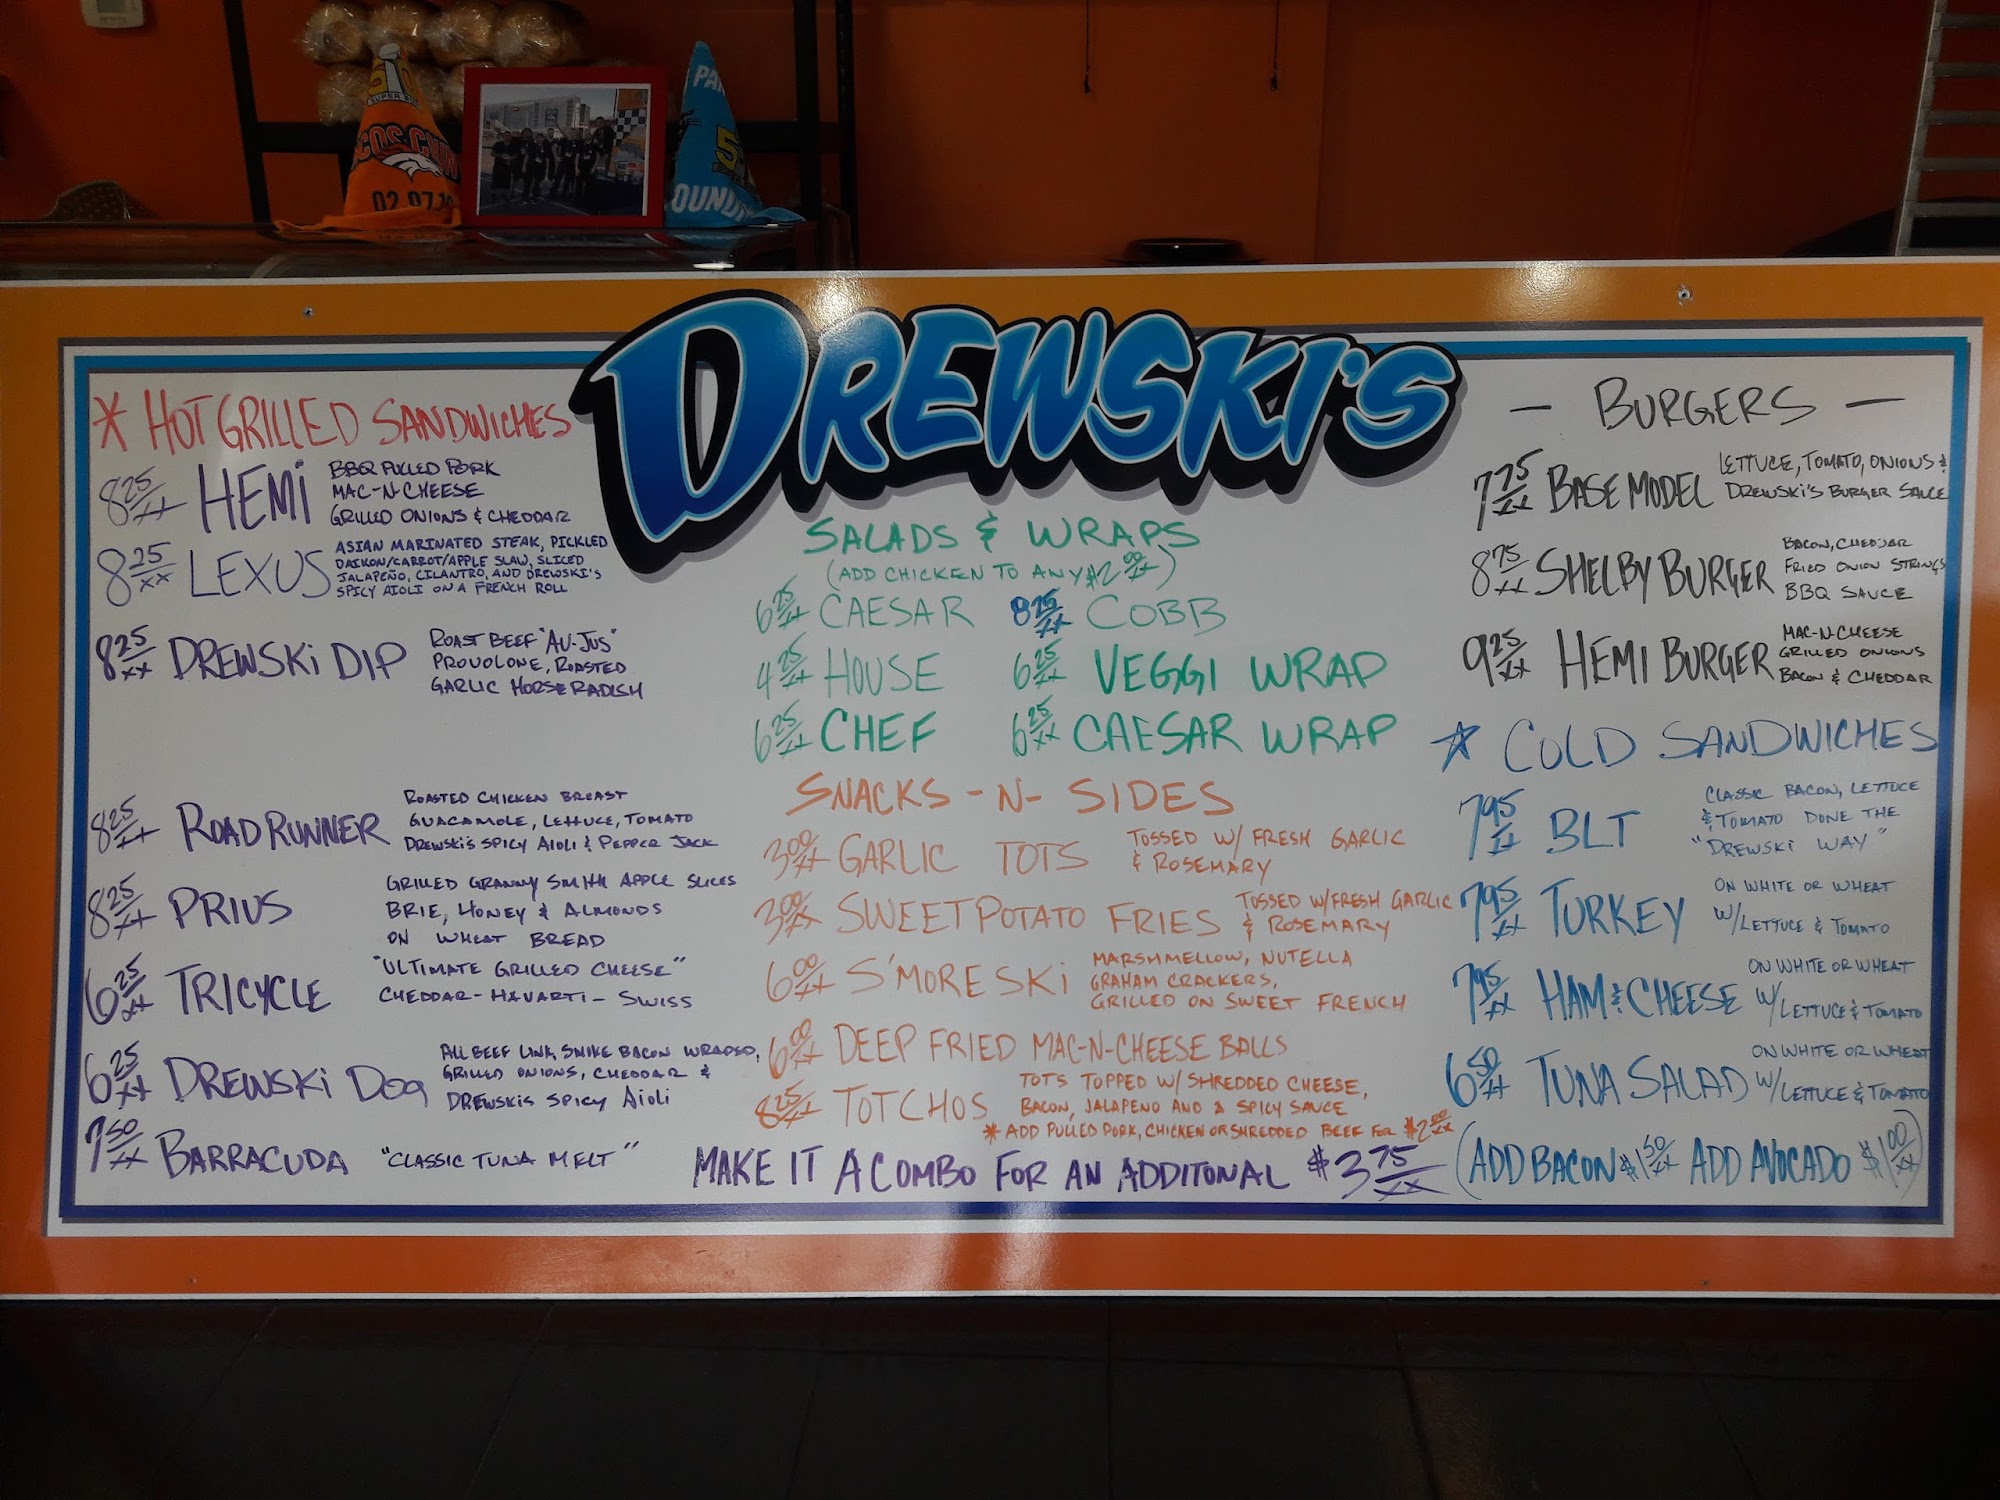 50
SUPER BOW
COS COUN
02.07.16
PAN
50
OUNDI
DREWSKI'S
* HOT GRILLED SANDWICHES
8 25/xx HEMI BBQ PULLED PORK
MAC-N-CHEESE
GRILLED ONIONS & CHEDDAR
8 25/xx LEXUS ASIAN MARINATED STEAK, PICKLED
DAIKON/CARROT/APPLE SLAW, SLICED
JALAPEÑO, CILANTRO, AND DREWSKI'S
SPICY AIOLI ON A FRENCH ROLL
8 25/xx DREWSKI DIP ROAST BEEF "AU-JUS"
PROVOLONE, ROASTED
GARLIC HORSERADISH
8 25/xx ROAD RUNNER ROASTED CHICKEN BREAST
GUACAMOLE, LETTUCE, TOMATO
DREWSKI'S SPICY AIOLI & PEPPER JACK
8 25/xx PRIUS GRILLED GRANNY SMITH APPLE SLICES
BRIE, HONEY & ALMONDS
ON WHEAT BREAD
6 25/xx TRICYCLE "ULTIMATE GRILLED CHEESE"
CHEDDAR-HAVARTI-SWISS
6 25/xx DREWSKI DOG ALL BEEF LINK, SMKE BACON WRAPED,
GRILLED ONIONS, CHEDDAR &
DREWSKIS SPICY AIOLI
7 50/xx BARRACUDA "CLASSIC TUNA MELT"
SALADS & WRAPS
(ADD CHICKEN TO ANY $2 00/xx)
6 25/xx CAESAR 8 25/xx COBB
4 25/xx HOUSE 6 25/xx VEGGI WRAP
6 25/xx CHEF 6 25/xx CAESAR WRAP
SNACKS-N-SIDES
3 00/xx GARLIC TOTS TOSSED W/ FRESH GARLIC
& ROSEMARY
3 00/xx SWEET POTATO FRIES TOSSED W/FRESH GARLIC
& ROSEMARY
6 00/xx S'MORESKI MARSHMELLOW, NUTELLA
GRAHAM CRACKERS,
GRILLED ON SWEET FRENCH
6 00/xx DEEP FRIED MAC-N-CHEESE BALLS
8 25/xx TOTCHOS TOTS TOPPED W/ SHREDDED CHEESE,
BACON, JALAPENO AND A SPICY SAUCE
* ADD PULLED PORK, CHICKEN OR SHREDDED BEEF FOR $2 00/xx
MAKE IT A COMBO FOR AN ADDITONAL $3 75/xx
- BURGERS -
7 75/xx BASE MODEL LETTUCE, TOMATO, ONIONS &
DREWSKI'S BURGER SAUCE
8 75/xx SHELBY BURGER BACON, CHEDDAR
FRIED ONION STRINGS
BBQ SAUCE
9 25/xx HEMI BURGER MAC-N-CHEESE
GRILLED ONIONS
BACON & CHEDDAR
* COLD SANDWICHES
7 95/xx BLT CLASSIC BACON, LETTUCE
& TOMATO DONE THE
"DREWSKI WAY"
7 95/xx TURKEY ON WHITE OR WHEAT
W/LETTUCE & TOMATO
7 95/xx HAM & CHEESE ON WHITE OR WHEAT
W/LETTUCE & TOMATO
6 50/xx TUNA SALAD ON WHITE OR WHEAT
W/LETTUCE & TOMATO
(ADD BACON $1 50/xx ADD AVOCADO $1 00/xx)